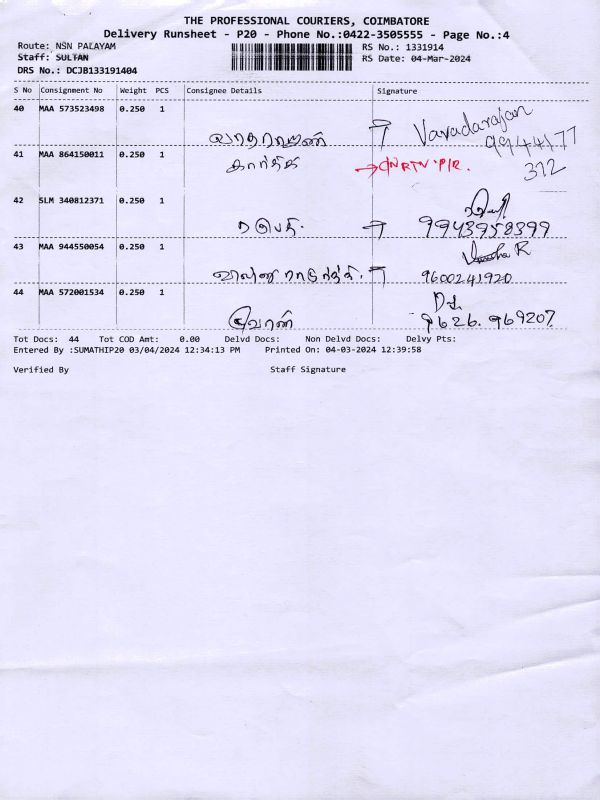 THE PROFESSIONAL COURIERS, COIMBATORE
Delivery Runsheet - P20 - Phone No.:0422-3505555 - Page No.:4
Route: NSN PALAYAM
RS No.: 1331914
Staff: SULTAN
RS Date: 04-Mar-2024
DRS No.: DCJB133191404
S No Consignment No Weight PCS Consignee Details Signature
40 MAA 573523498 0.250 1
வரதராஜன் Varadarajan
9944177
312
41 MAA 864150011 0.250 1
கார்த்திக்
42 SLM 340812371 0.250 1
9943958399
43 MAA 944550054 0.250 1
9600241920
44 MAA 572001534 0.250 1
9626.969207
Tot Docs: 44 Tot COD Amt: 0.00 Delvd Docs: Non Delvd Docs: Delvy Pts:
Entered By :SUMATHIP20 03/04/2024 12:34:13 PM Printed On: 04-03-2024 12:39:58
Verified By Staff Signature